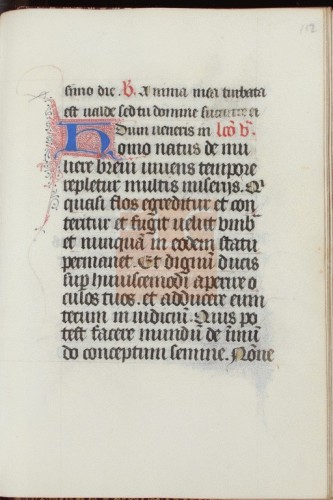 112
simo die. V. Anima mea turbata
est ualde sed tu domine succurre ei
Dium ueneris in lc̄o v̄.
Homo natus de mu
liere breui uiuens tempore
repletur multis miserijs. Q̄
quasi flos egreditur et con
teritur et fugit uelut vmb̄
et nunquā in eodem statu
permanet. Et dignū ducis
sup̄ huiuscemodi aperire o
culos tuos. et adducere eum
tecum in iudiciū. Quis po
test facere mundū de īmū
do conceptum semine. Nōne